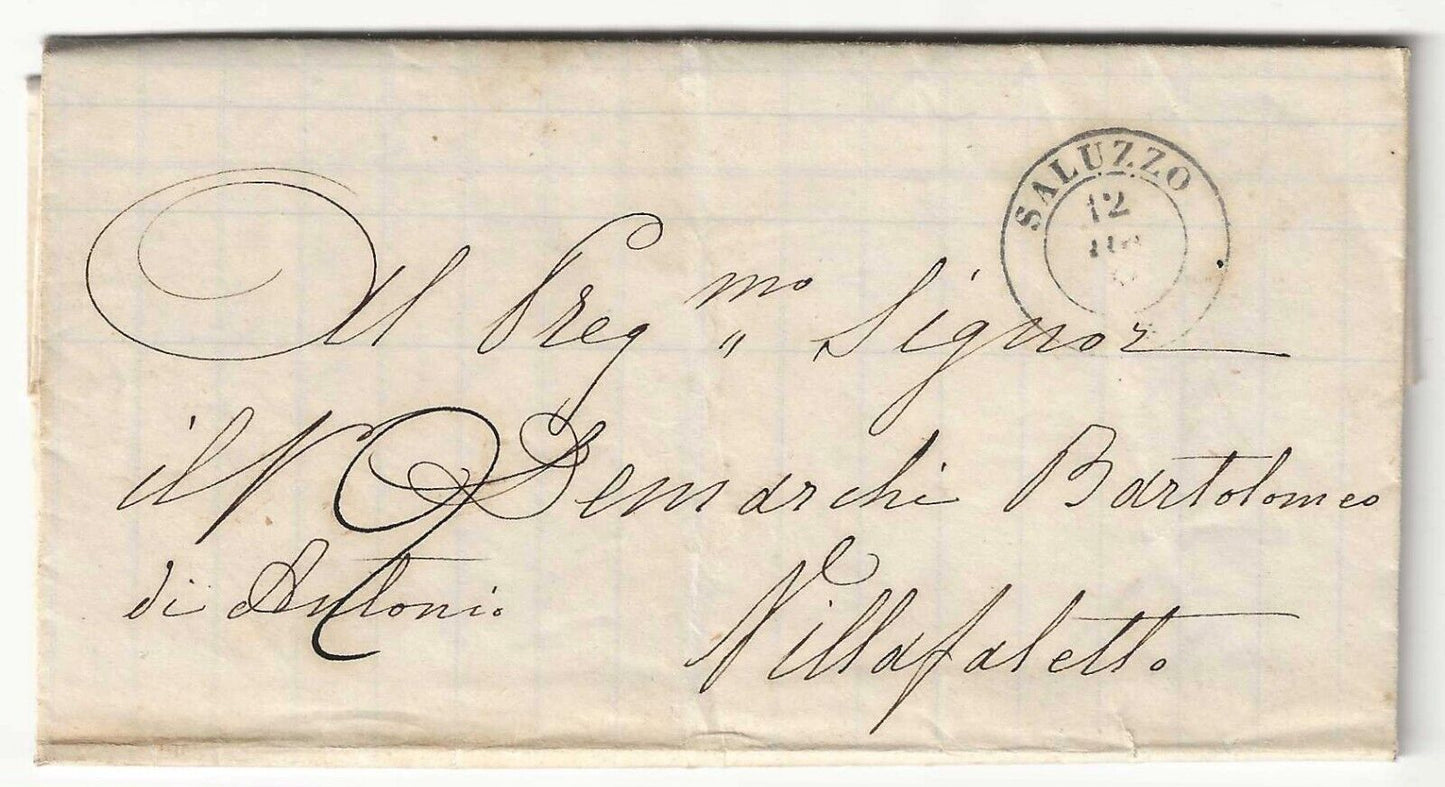 SALUZZO
12
Al Preg.mo Signor
il Sig Demarchi Bartolomeo
di Antonio
Villafaletto